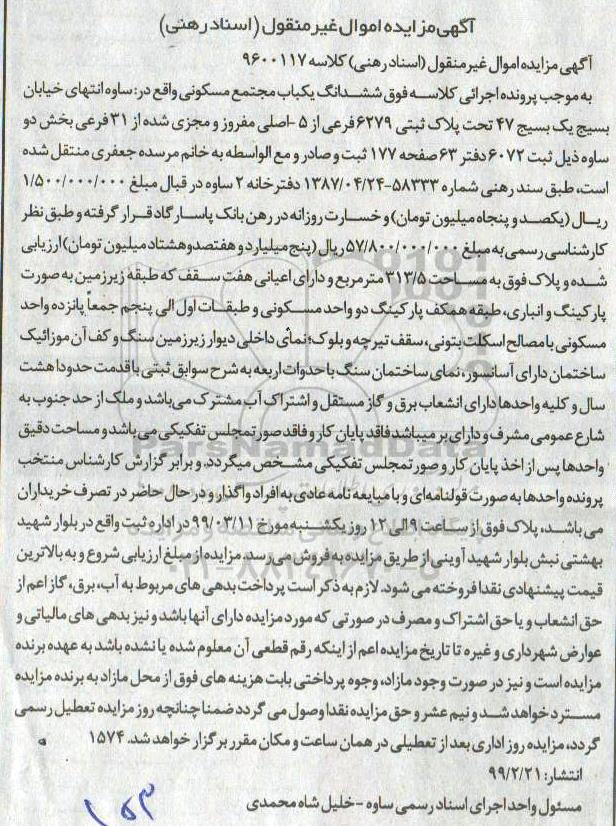 آگهی مزایده اموال غیر منقول (اسناد رهنی)
آگهی مزایده اموال غیر منقول (اسناد رهنی) کلاسه ۹۶۰۰۱۱۷
به موجب پرونده اجرائی کلاسه فوق ششدانگ یکباب مجتمع مسکونی واقع در: ساوه انتهای خیابان
بسیج یک بسیج ۴۷ تحت پلاک ثبتی ۶۲۷۹ فرعی از ۵-اصلی مفروز و مجزی شده از ۳۱ فرعی بخش دو
ساوه ذیل ثبت ۶۰۷۲ دفتر ۶۳ صفحه ۱۷۷ ثبت و صادر و مع الواسطه به خانم مرسده جعفری منتقل شده
است، طبق سند رهنی شماره ۵۸۳۳۳-۱۳۸۷/۰۴/۲۴ دفترخانه ۲ ساوه در قبال مبلغ ۱/۵۰۰/۰۰۰/۰۰۰
ریال (یکصد و پنجاه میلیون تومان) و خسارت روزانه در رهن بانک پاسارگاد قرار گرفته و طبق نظر
کارشناسی رسمی به مبلغ ۵۷/۸۰۰/۰۰۰/۰۰۰ ریال (پنج میلیارد و هفتصد و هشتاد میلیون تومان) ارزیابی
شده و پلاک فوق به مساحت ۳۱۳/۵ متر مربع و دارای اعیانی هفت سقف که طبقه زیرزمین به صورت
پارکینگ و انباری، طبقه همکف پارکینگ دو واحد مسکونی و طبقات اول الی پنجم جمعاً پانزده واحد
مسکونی با مصالح اسکلت بتونی، سقف تیرچه و بلوک؛ نمای داخلی دیوار زیرزمین سنگ و کف آن موزائیک
ساختمان دارای آسانسور، نمای ساختمان سنگ با حدوات اربعه به شرح سوابق ثبتی با قدمت حدودا هشت
سال و کلیه واحدها دارای انشعاب برق و گاز مستقل و اشتراک آب مشترک می باشد و ملک از حد جنوب به
شارع عمومی مشرف و دارای بر میباشد فاقد پایان کار و فاقد صورتمجلس تفکیکی می باشد و مساحت دقیق
واحدها پس از اخذ پایان کار و صورتمجلس تفکیکی مشخص میگردد. و برابر گزارش کارشناس منتخب
پرونده واحدها به صورت قولنامه ای و با مبایعه نامه عادی به افراد واگذار و در حال حاضر در تصرف خریداران
می باشد، پلاک فوق از ساعت ۹ الی ۱۲ روز یکشنبه مورخ ۹۹/۰۳/۱۱ در اداره ثبت واقع در بلوار شهید
بهشتی نبش بلوار شهید آوینی از طریق مزایده به فروش می رسد. مزایده از مبلغ ارزیابی شروع و به بالاترین
قیمت پیشنهادی نقدا فروخته می شود. لازم به ذکر است پرداخت بدهی های مربوط به آب، برق، گاز اعم از
حق انشعاب و یا حق اشتراک و مصرف در صورتی که مورد مزایده دارای آنها باشد و نیز بدهی های مالیاتی و
عوارض شهرداری و غیره تا تاریخ مزایده اعم از اینکه رقم قطعی آن معلوم شده یا نشده باشد به عهده برنده
مزایده است و نیز در صورت وجود مازاد، وجوه پرداختی بابت هزینه های فوق از محل مازاد به برنده مزایده
مسترد خواهد شد و نیم عشر و حق مزایده نقدا وصول می گردد ضمنا چنانچه روز مزایده تعطیل رسمی
گردد، مزایده روز اداری بعد از تعطیلی در همان ساعت و مکان مقرر برگزار خواهد شد. ۱۵۷۴
انتشار: ۹۹/۲/۲۱
مسئول واحد اجرای اسناد رسمی ساوه - خلیل شاه محمدی
ParsNamadData